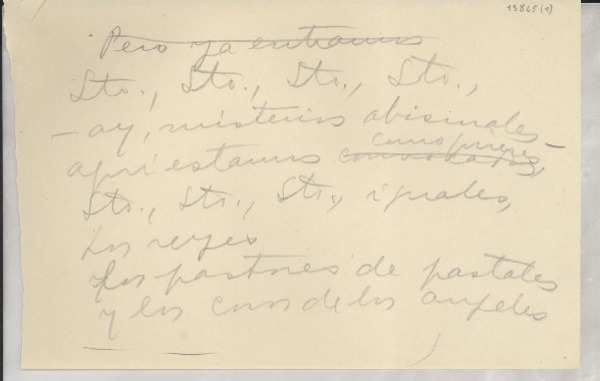 13865(1)
Pero ya entramos
Sto., Sto., Sto., Sto.,
— ay, misterios abisinales —
como quieres
aquí estamos convocados,
Sto., Sto., Sto., iguales,
Los reyes
los pastores de pastales
y los coros de los angeles